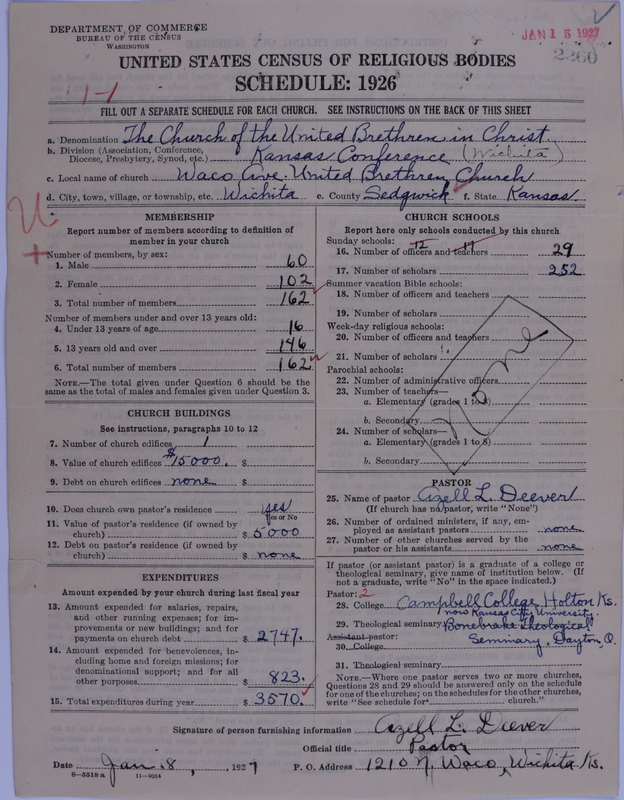 DEPARTMENT OF COMMERCE
BUREAU OF THE CENSUS
WASHINGTON
JAN 15 1927
2260
UNITED STATES CENSUS OF RELIGIOUS BODIES
SCHEDULE: 1926
1-1
FILL OUT A SEPARATE SCHEDULE FOR EACH CHURCH. SEE INSTRUCTIONS ON THE BACK OF THIS SHEET
a. Denomination The Church of the United Brethren in Christ
b. Division (Association, Conference, Diocese, Presbytery, Synod, etc.) Kansas Conference (Wichita)
c. Local name of church Waco Ave. United Brethren Church
d. City, town, village, or township, etc. Wichita e. County Sedgwick f. State Kansas
MEMBERSHIP
Report number of members according to definition of
member in your church
Number of members, by sex:
1. Male 60
2. Female 102
3. Total number of members 162
Number of members under and over 13 years old:
4. Under 13 years of age 16
5. 13 years old and over 146
6. Total number of members 162
NOTE.—The total given under Question 6 should be
same as the total of males and females given under Question 3.
CHURCH BUILDINGS
See instructions, paragraphs 10 to 12
7. Number of church edifices 1
8. Value of church edifices $15000. $
9. Debt on church edifices none $
10. Does church own pastor's residence yes
Yes or No
11. Value of pastor's residence (if owned by
church) $ 5000
12. Debt on pastor's residence (if owned by
church) $ none
EXPENDITURES
Amount expended by your church during last fiscal year
13. Amount expended for salaries, repairs,
and other running expenses; for im-
provements or new buildings; and for
payments on church debt $ 2747.
14. Amount expended for benevolences, in-
cluding home and foreign missions; for
denominational support; and for all
other purposes $ 823.
15. Total expenditures during year $ 3570.
CHURCH SCHOOLS
Report here only schools conducted by this church
Sunday schools: 12 17
16. Number of officers and teachers 29
17. Number of scholars 252
Summer vacation Bible schools:
18. Number of officers and teachers
19. Number of scholars
Week-day religious schools:
20. Number of officers and teachers
21. Number of scholars
Parochial schools:
22. Number of administrative officers
23. Number of teachers—
a. Elementary (grades 1 to 8)
b. Secondary
24. Number of scholars—
a. Elementary (grades 1 to 8)
b. Secondary
None
PASTOR
25. Name of pastor Azell L. Deever
(If church has no pastor, write "None")
26. Number of ordained ministers, if any, em-
ployed as assistant pastors none
27. Number of other churches served by the
pastor or his assistants none
If pastor (or assistant pastor) is a graduate of a college or
theological seminary, give name of institution below. (If
not a graduate, write "No" in the space indicated.)
Pastor: 2
28. College Campbell College, Holton Ks.
now Kansas City University.
29. Theological seminary Bonebrake Theological
Assistant pastor: Seminary, Dayton, O.
30. College
31. Theological seminary
NOTE.—Where one pastor serves two or more churches,
Questions 28 and 29 should be answered only on the schedule
for one of the churches; on the schedules for the other churches,
write "See schedule for church."
Signature of person furnishing information Azell L. Deever
Official title Pastor
Date Jan. 8, 1927 P. O. Address 1210 N. Waco, Wichita Ks.
8-5518 a 11-9054